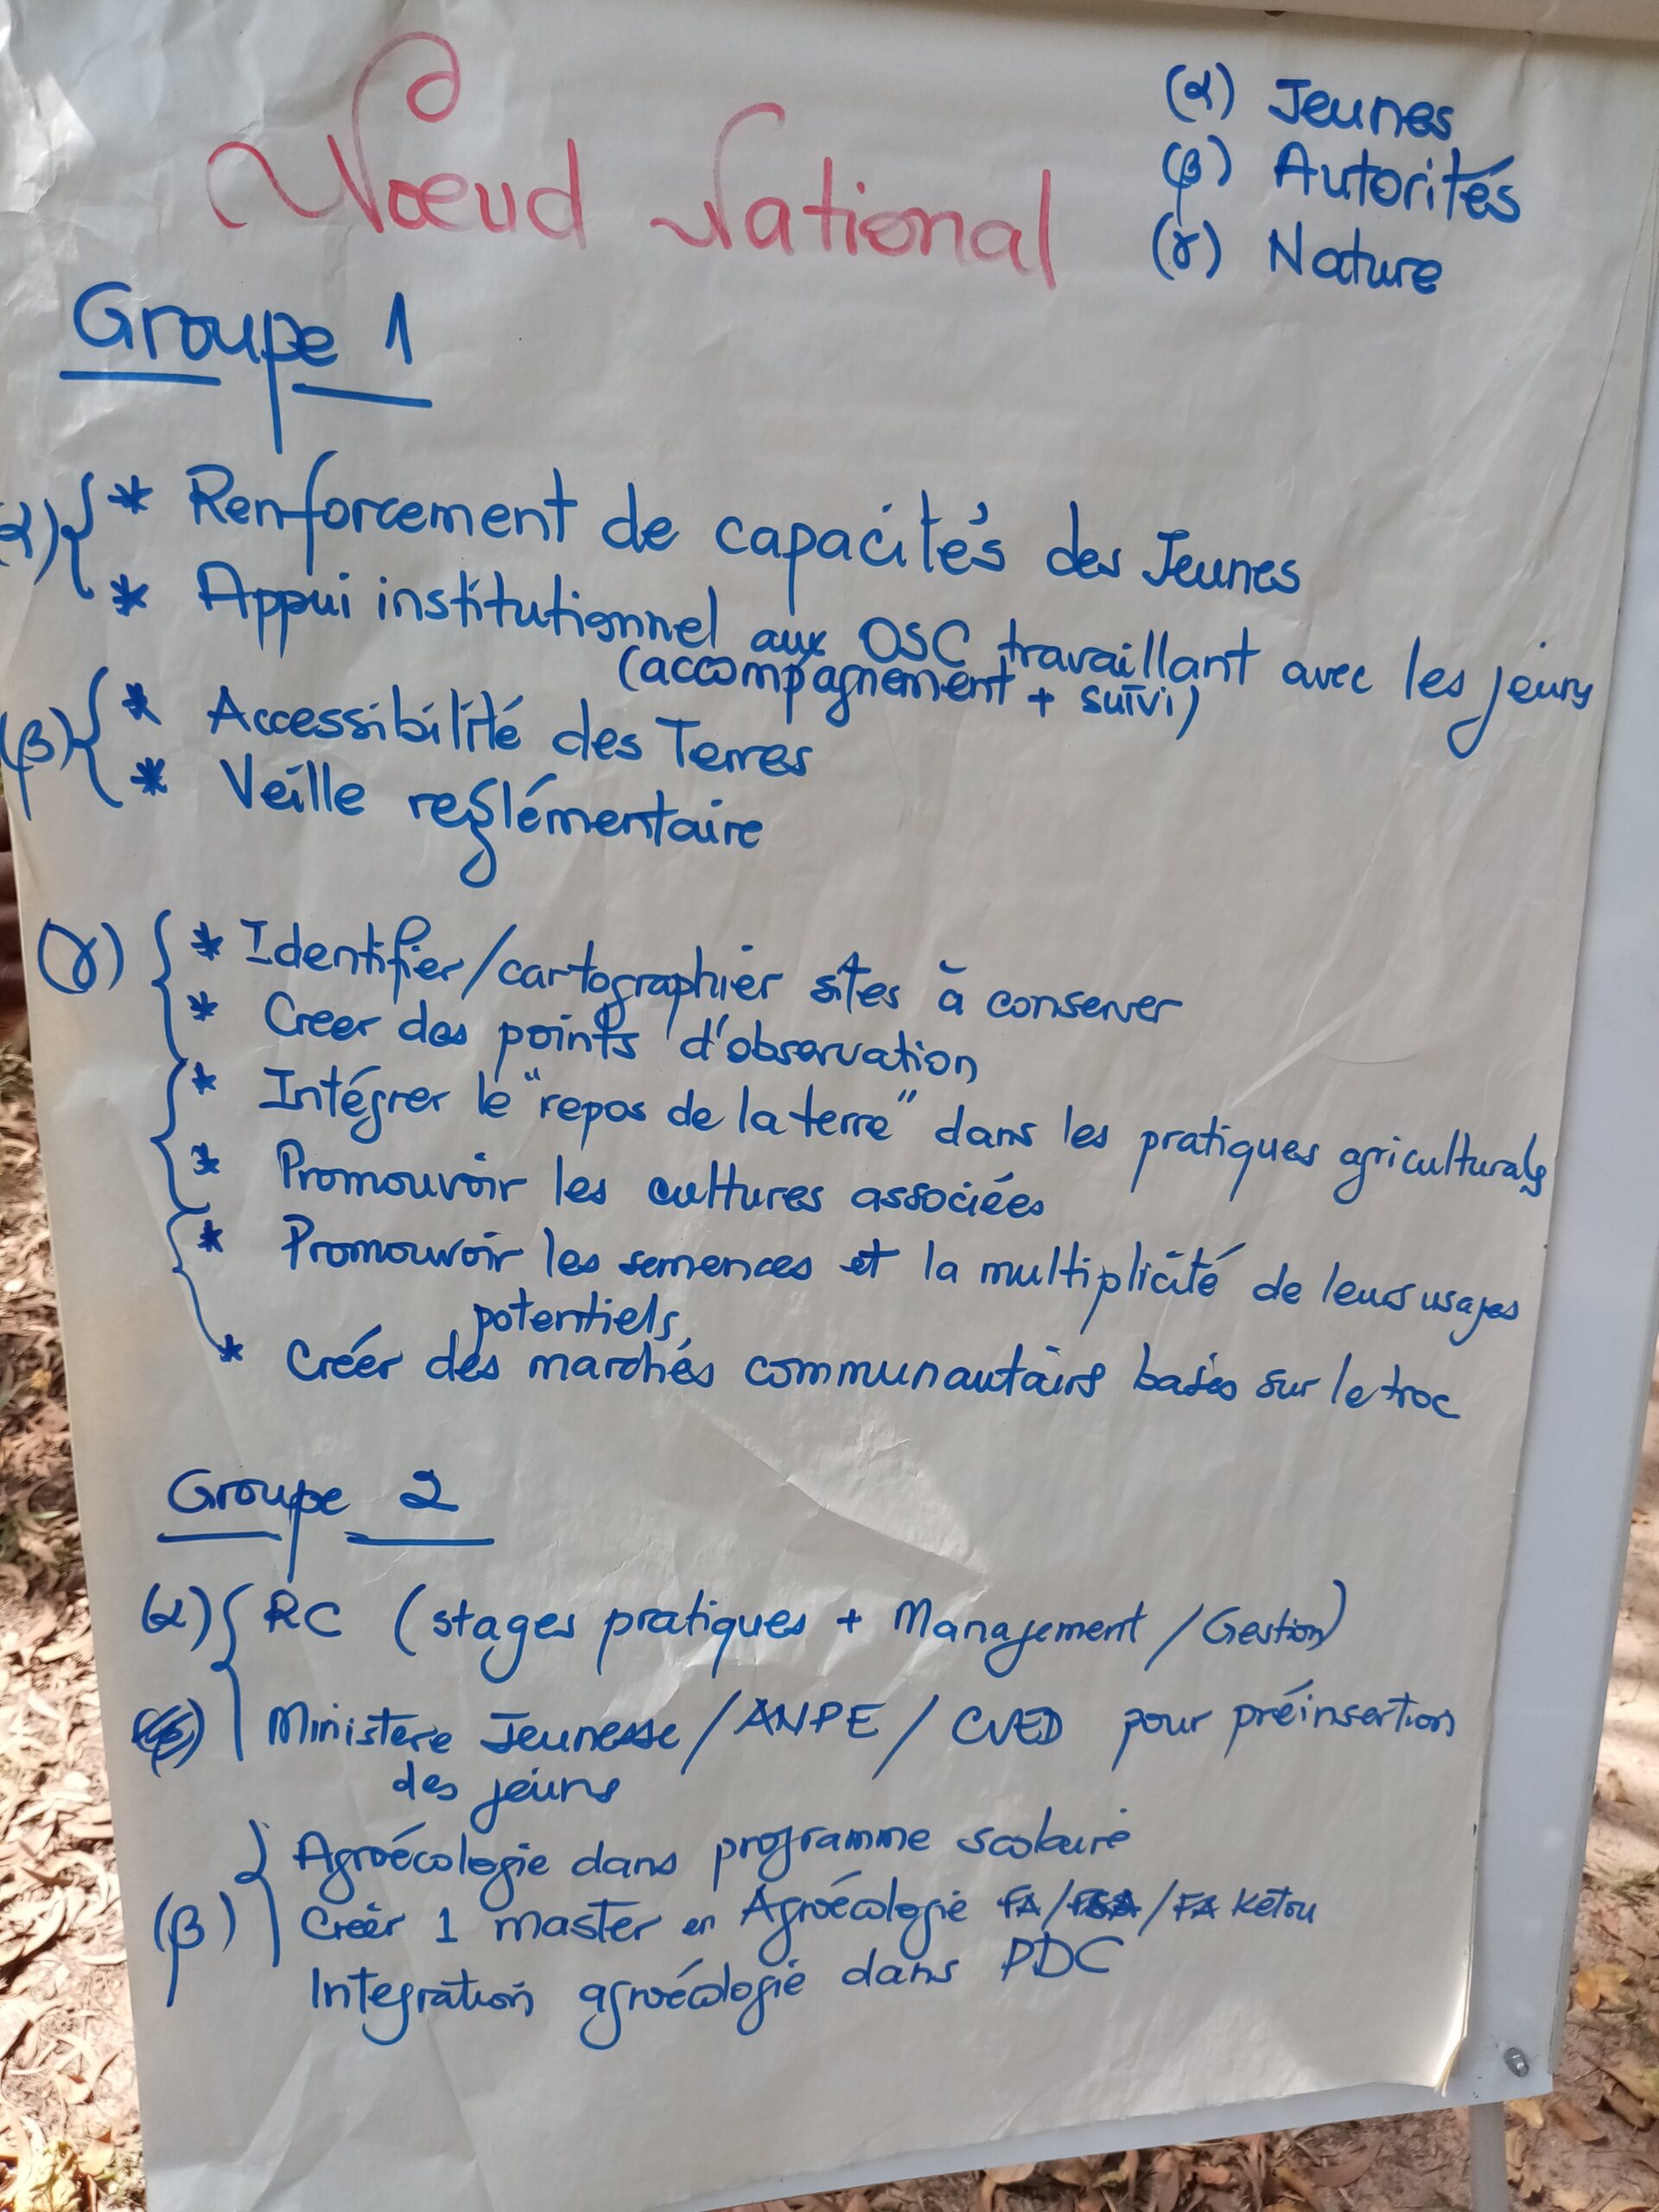 Nœud National
(α) Jeunes
(β) Autorités
(γ) Nature
Groupe 1
(α) { * Renforcement de capacités des Jeunes
* Appui institutionnel aux OSC travaillant avec les jeuns
(accompagnement + suivi)
(β) { * Accessibilité des Terres
* Veille reglémentaire
(γ) { * Identifier/cartographier sites à conserver
* Creer des points d'observation
* Intégrer le "repos de la terre" dans les pratiques agriculturals
* Promouvoir les cultures associées
* Promouvoir les semences et la multiplicité de leurs usages
potentiels,
* Créer des marchés communautairs basés sur le troc
Groupe 2
(α) { RC (stages pratiques + Management / Gestion)
Ministere Jeunesse / ANPE / CVED pour préinsertion
des jeuns
Agroécologie dans programme scolaire
(β) } Créer 1 master en Agroécologie FA/ /FA Ketou
Integration agroécologie dans PDC